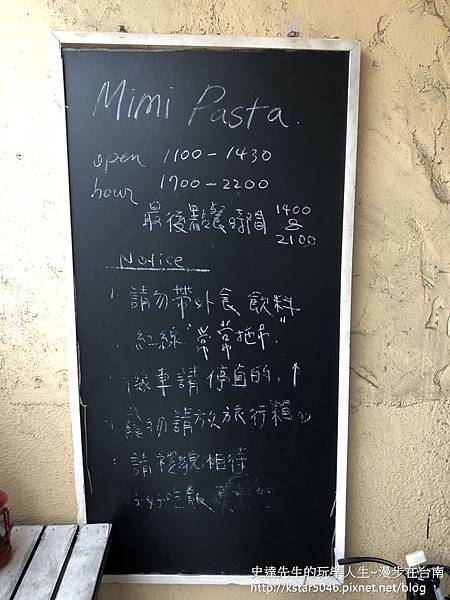 Mimi Pasta.
open 1100-1430
hour 1700-2200
最後點餐時間 1400
&
2100
Notice
請勿帶外食飲料
紅線"常常拖吊"
機車請停直的。↑
寵物請放旅行箱。
請禮貌相待
好好吃飯
史達先生的玩樂人生~漫步在台南
http://kstar5046.pixnet.net/blog